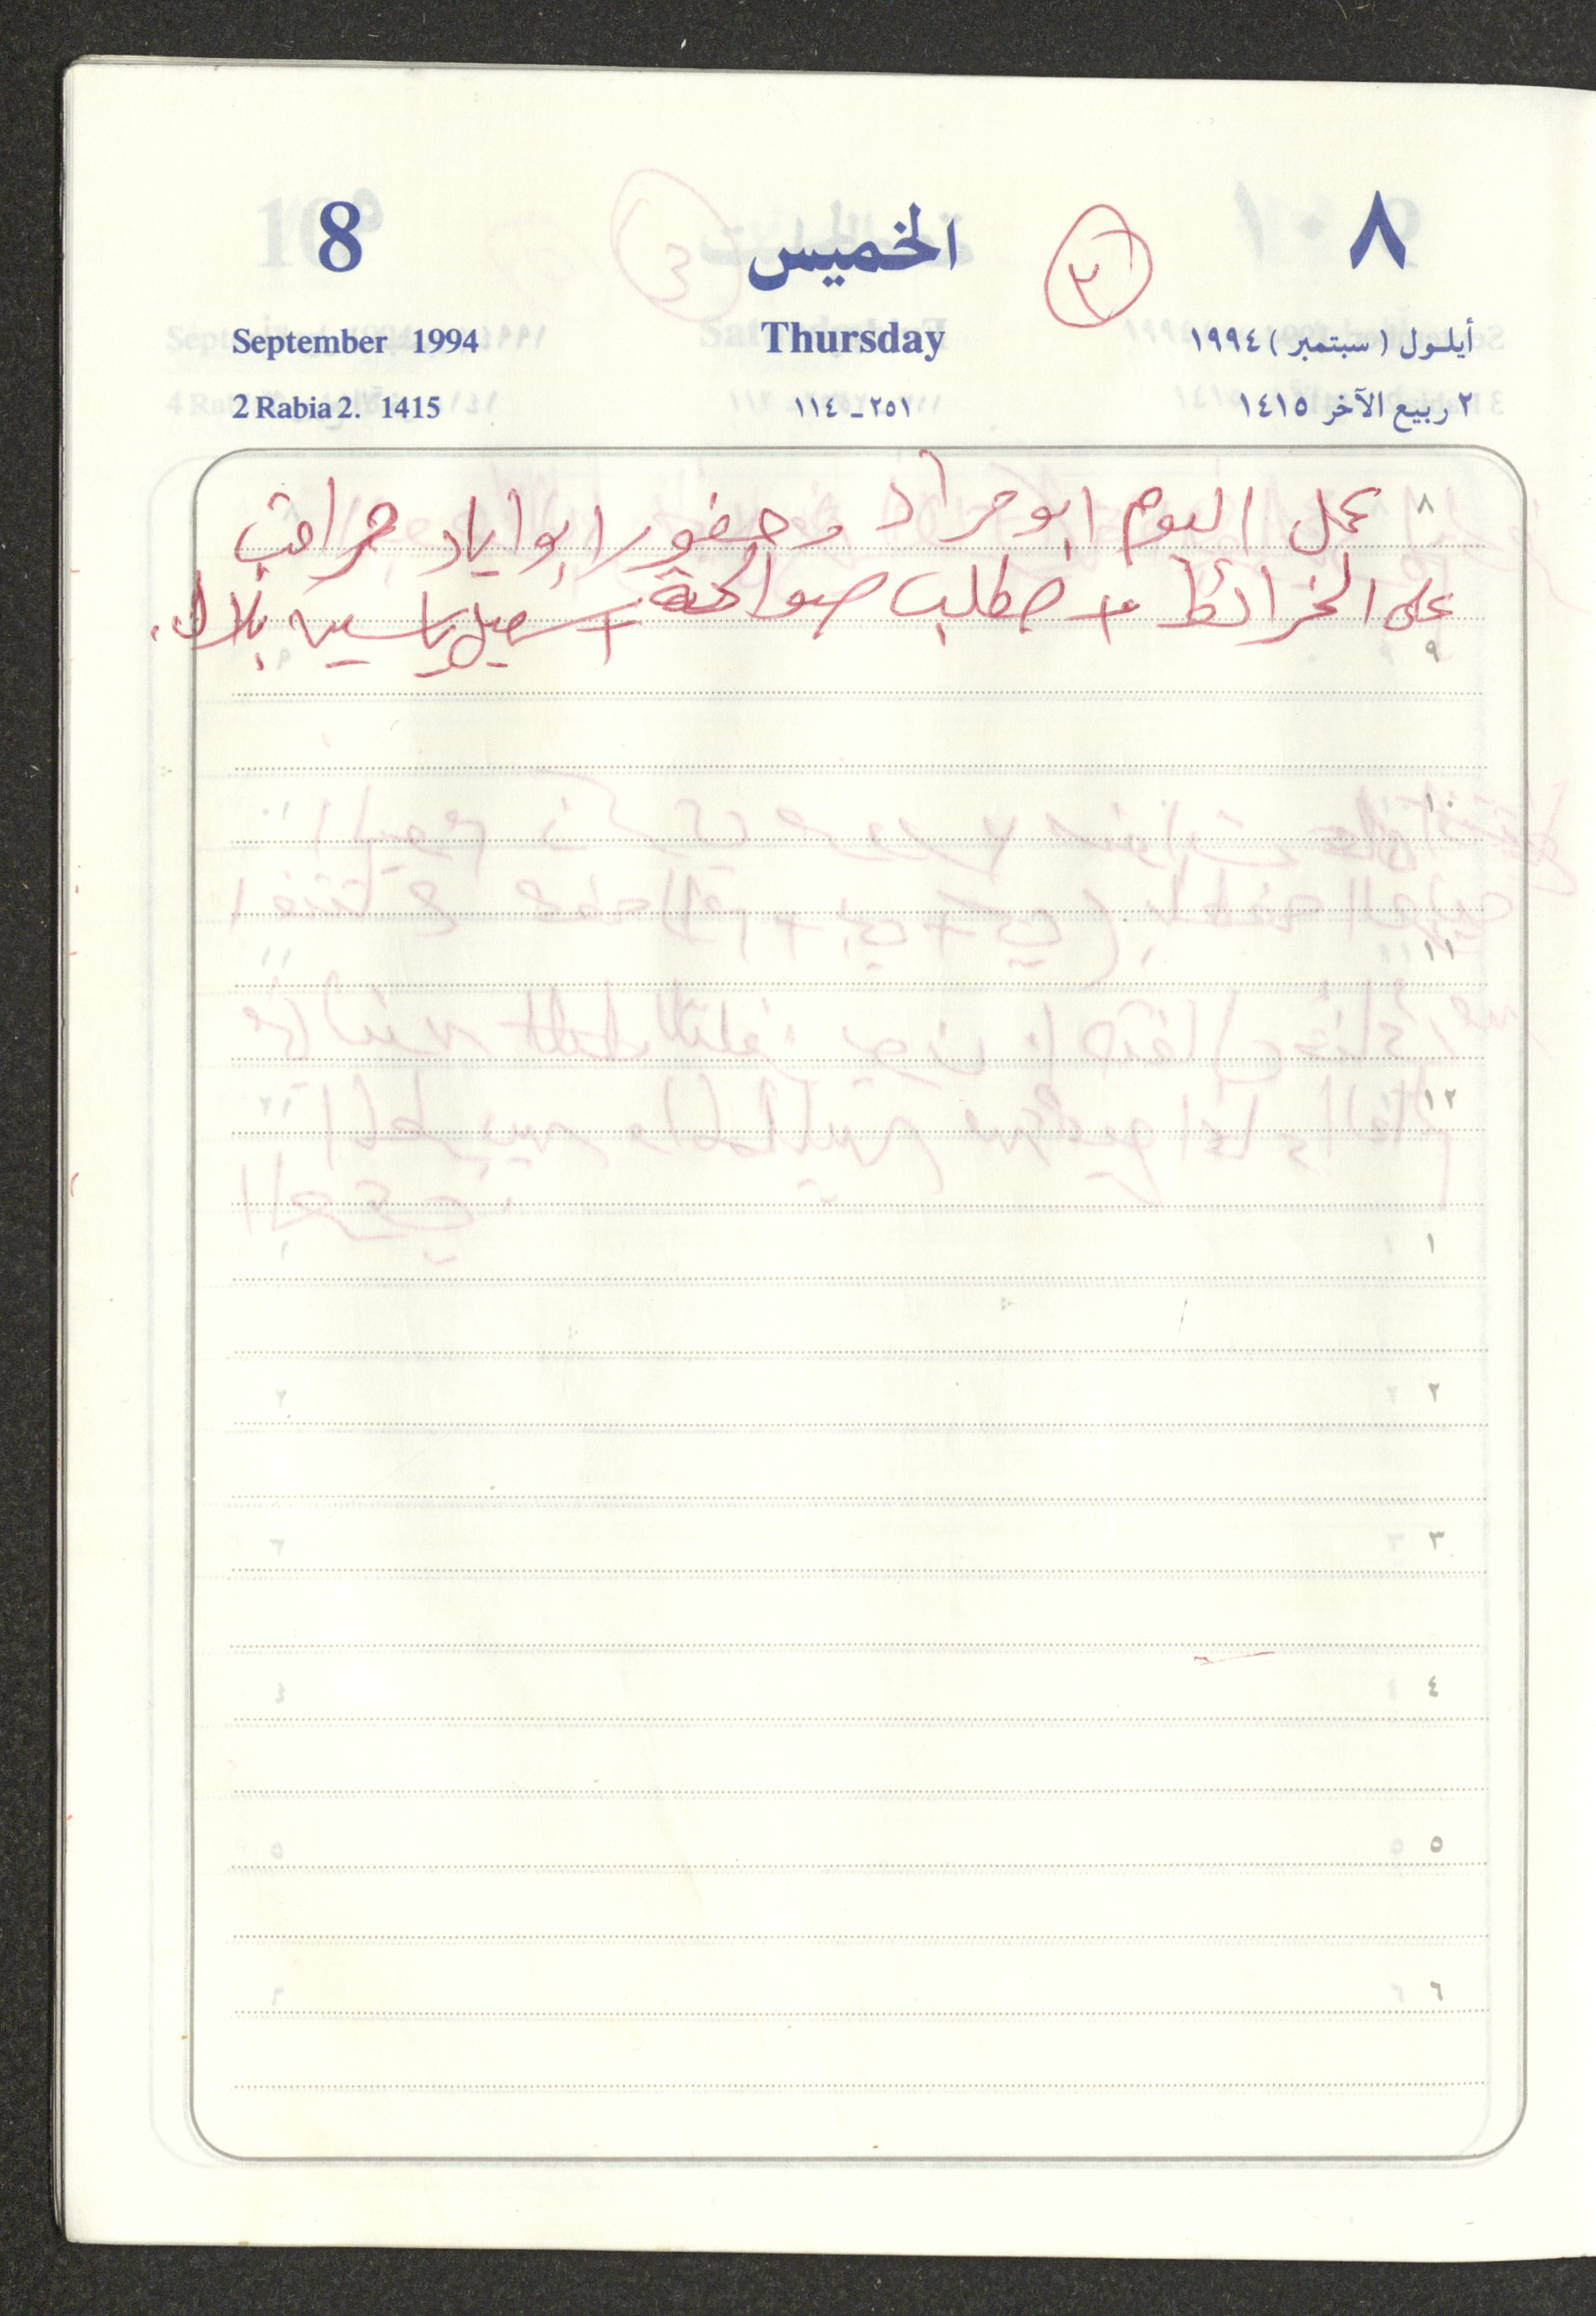 8 الخميس ٢ ٨
September 1994 Thursday أيلول (سبتمبر) ١٩٩٤
2 Rabia 2. 1415 ٢٥١ - ١١٤ ٢ ربيع الآخر ١٤١٥
٨ عمل اليوم ابو مراد وحضور ابو اياد مراقب
على الخرائط + صوالحة + بلال.
٩
١٠
١١
١٢
١
٢
٣
٤
٥
٦